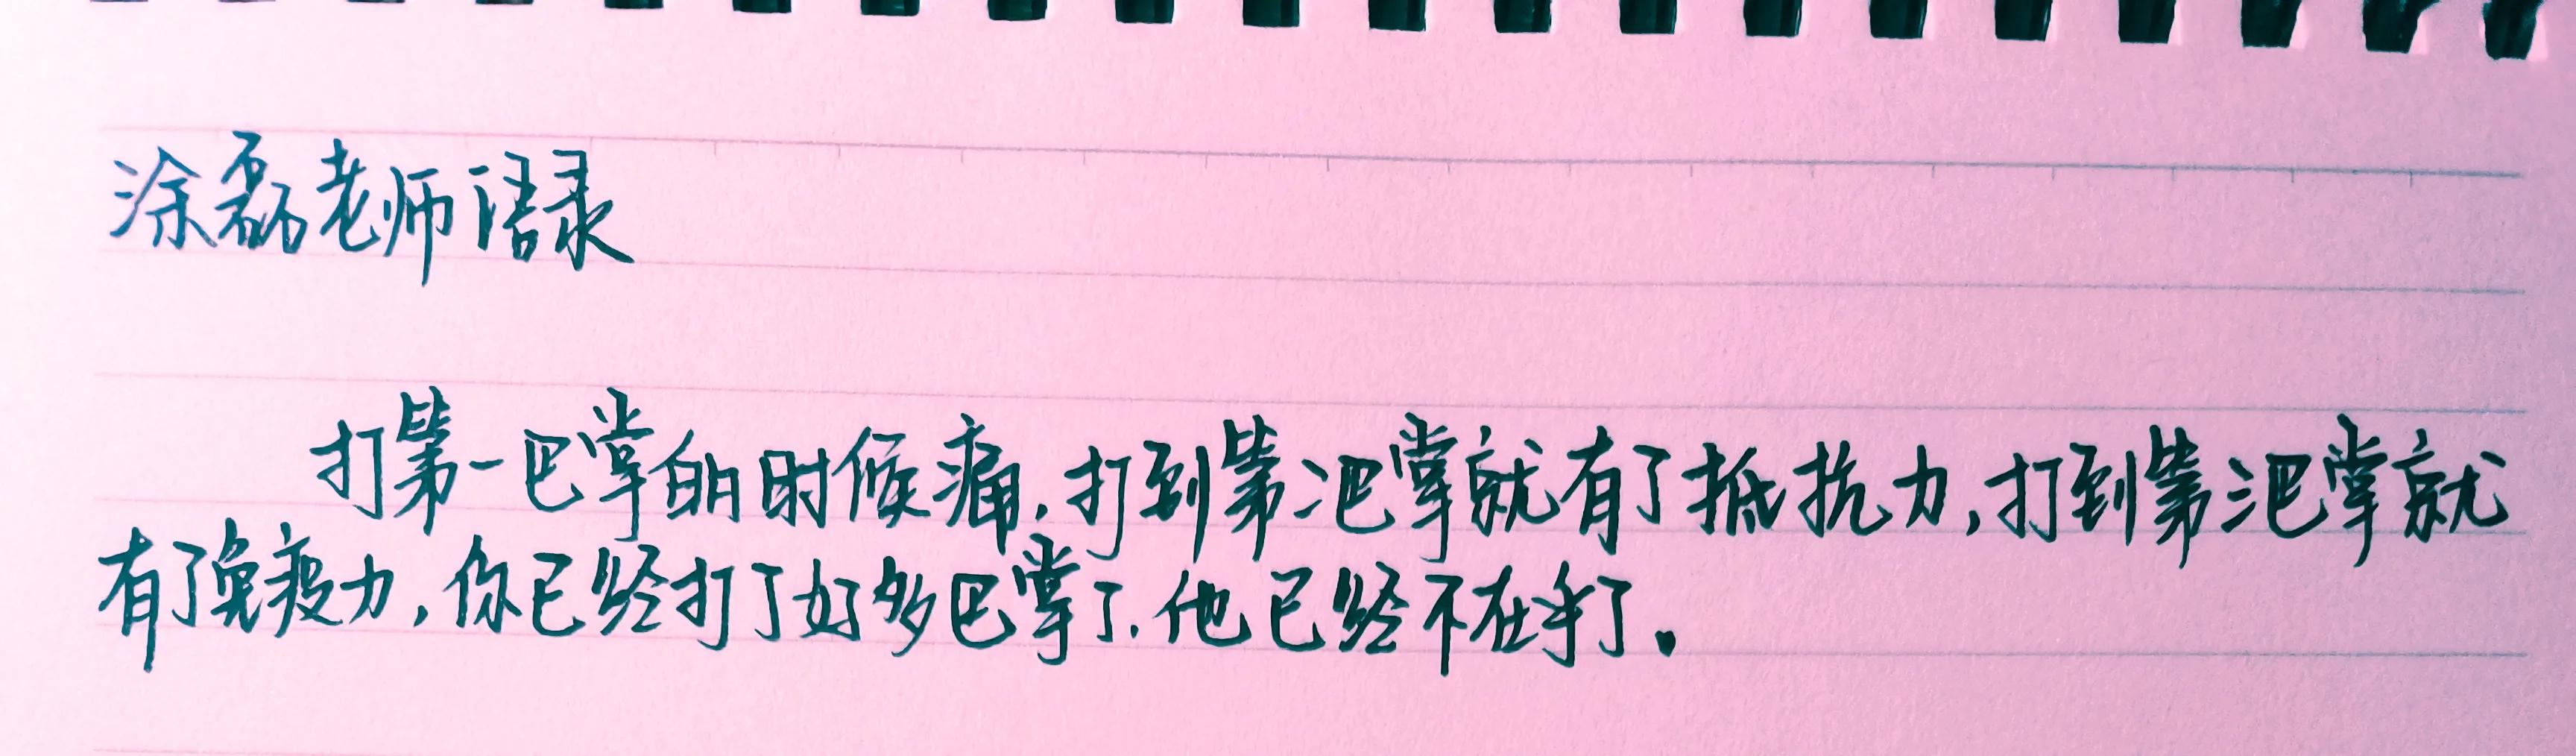 涂磊老师语录
打第一巴掌的时候痛.打到第二巴掌就有了抵抗力,打到第三巴掌就
有了免疫力,你已经打了好多巴掌了.他已经不在乎了.